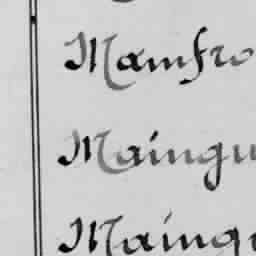 Mamfro
Maingu
Maingu